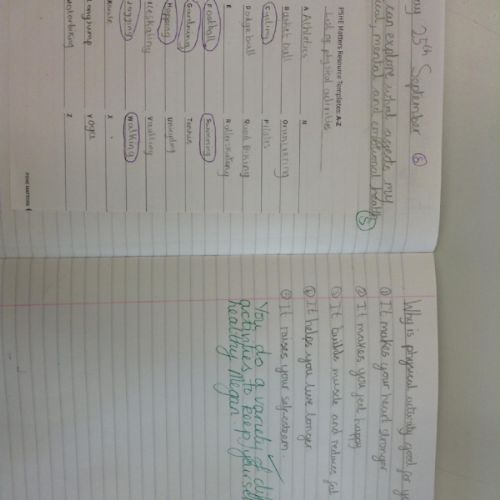 25th September
can explore what affects my
mental and emotional health
PSHE Matters Resource Templates: A-Z
List of physical activities
A Athletics N
B Basket ball Orienteering
Cycling Pilates
D Dodge ball Quad Biking
E Rollerskating
F Football Swimming
Gardening Tennis
Hopping
skating
Jogging Walking
X
Long jump Yoga
Z
PSHE MATTERS
Why is physical activity good for
① It makes your heart stronger
② It makes you feel happy
③ It builds muscle and reduces fat
④ It helps you live longer
⑤ It raises your self-esteem.
You do a variety of
activities to keep
healthy Megan